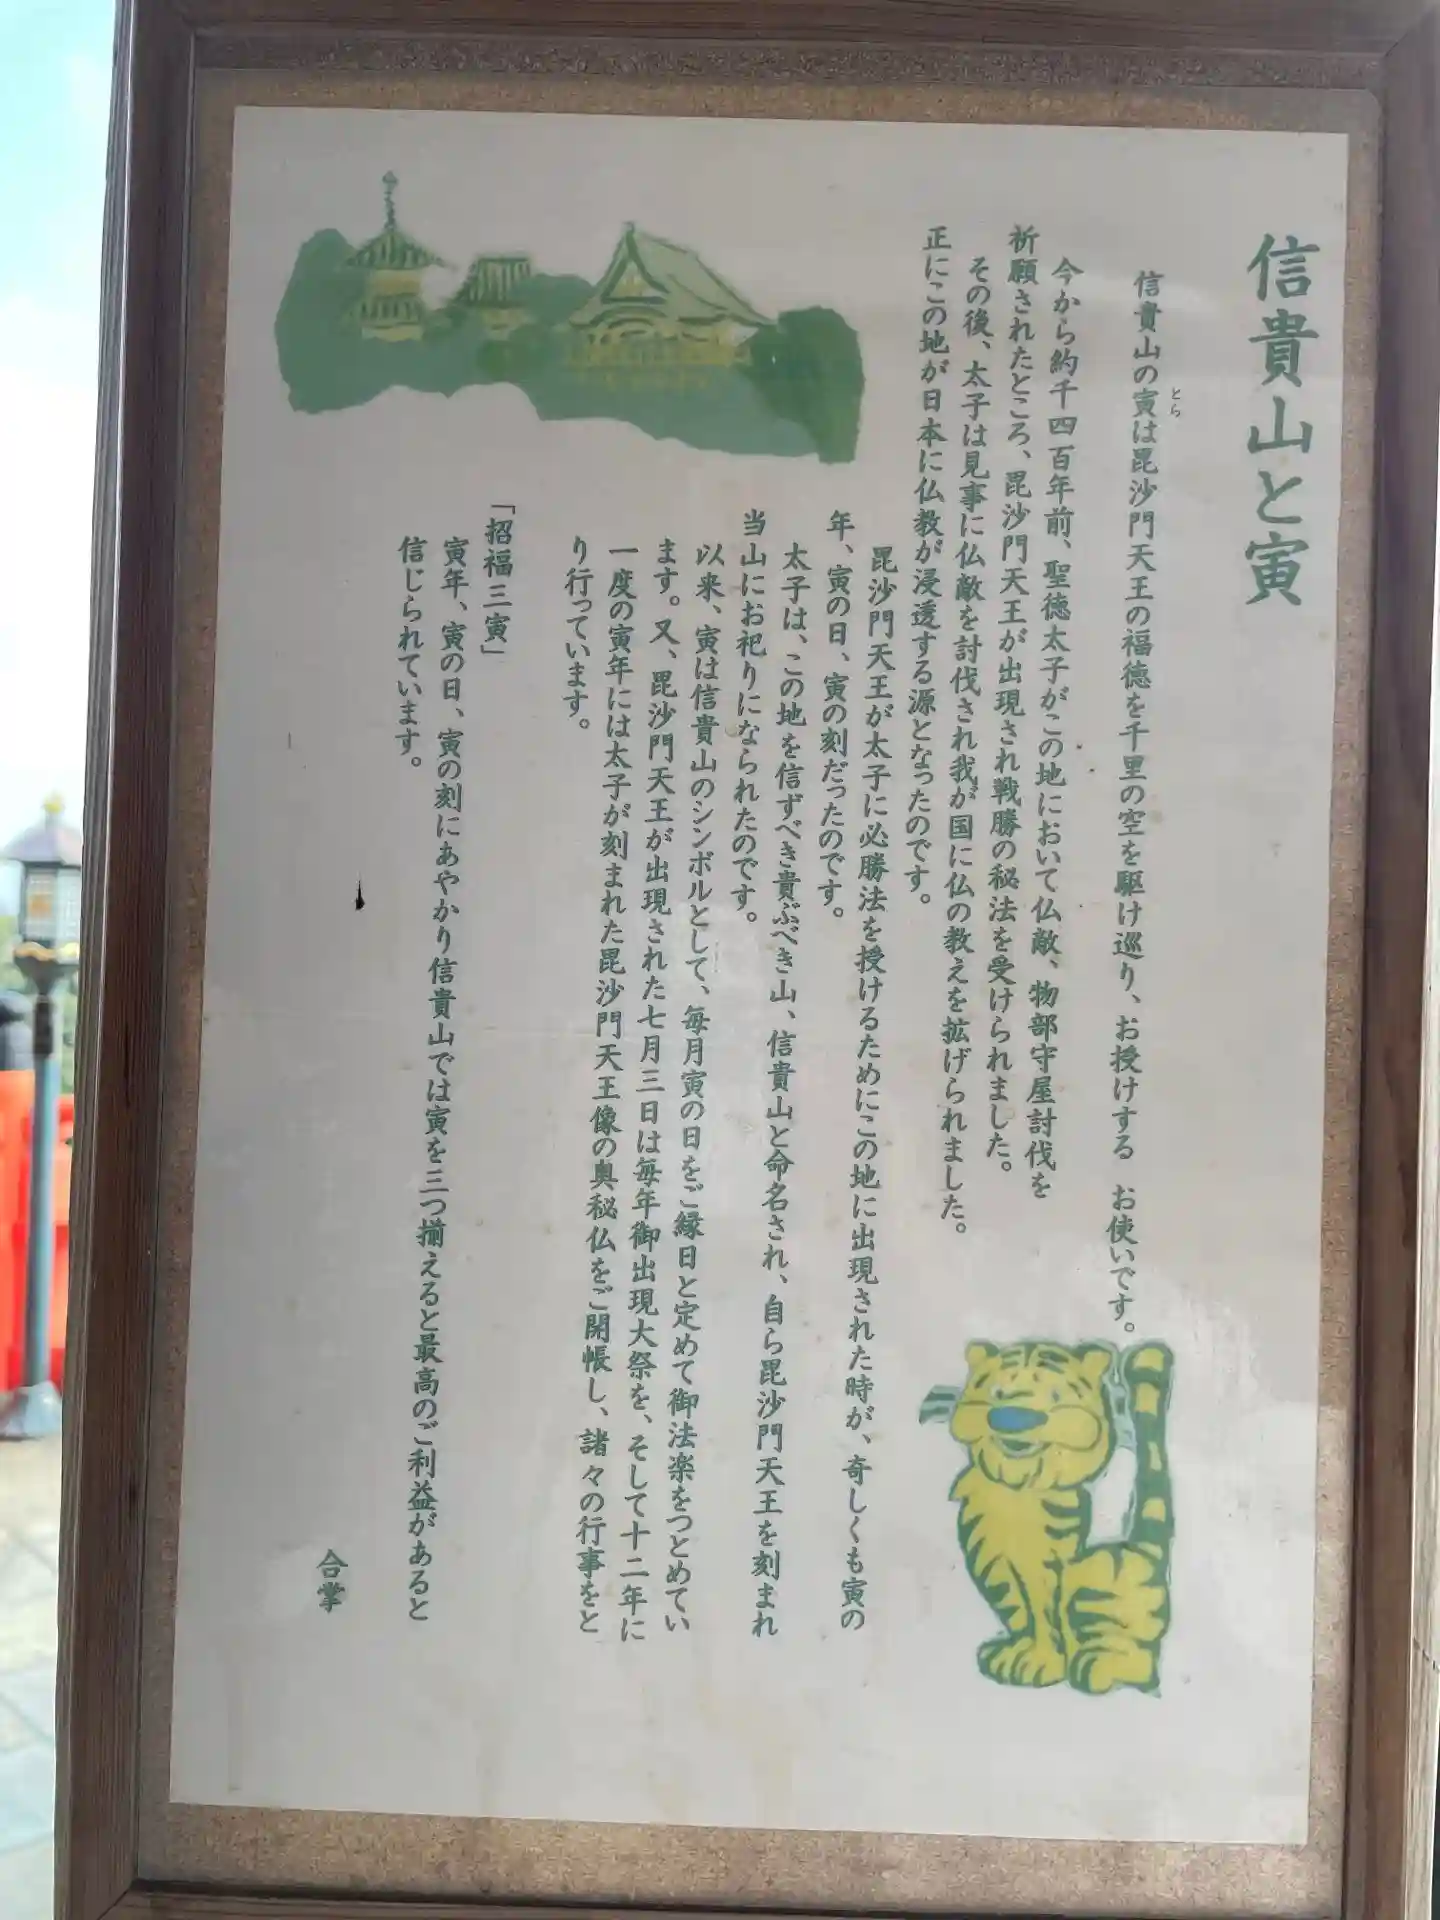 信貴山と寅
信貴山の寅は毘沙門天王の福徳を千里の空を駆け巡り、お授けする　お使いです。
とら
今から約千四百年前、聖徳太子がこの地において仏敵、物部守屋討伐を
祈願されたところ、毘沙門天王が出現され戦勝の秘法を受けられました。
その後、太子は見事に仏敵を討伐され我が国に仏の教えを拡げられました。
正にこの地が日本に仏教が浸透する源となったのです。
毘沙門天王が太子に必勝法を授けるためにこの地に出現された時が、奇しくも寅の
年、寅の日、寅の刻だったのです。
太子は、この地を信ずべき貴ぶべき山、信貴山と命名され、自ら毘沙門天王を刻まれ
当山にお祀りになられたのです。
以来、寅は信貴山のシンボルとして、毎月寅の日をご縁日と定めて御法楽をつとめてい
ます。又、毘沙門天王が出現された七月三日は毎年御出現大祭を、そして十二年に
一度の寅年には太子が刻まれた毘沙門天王像の奥秘仏をご開帳し、諸々の行事をと
り行っています。
「招福三寅」
寅年、寅の日、寅の刻にあやかり信貴山では寅を三つ揃えると最高のご利益があると
信じられています。
合掌